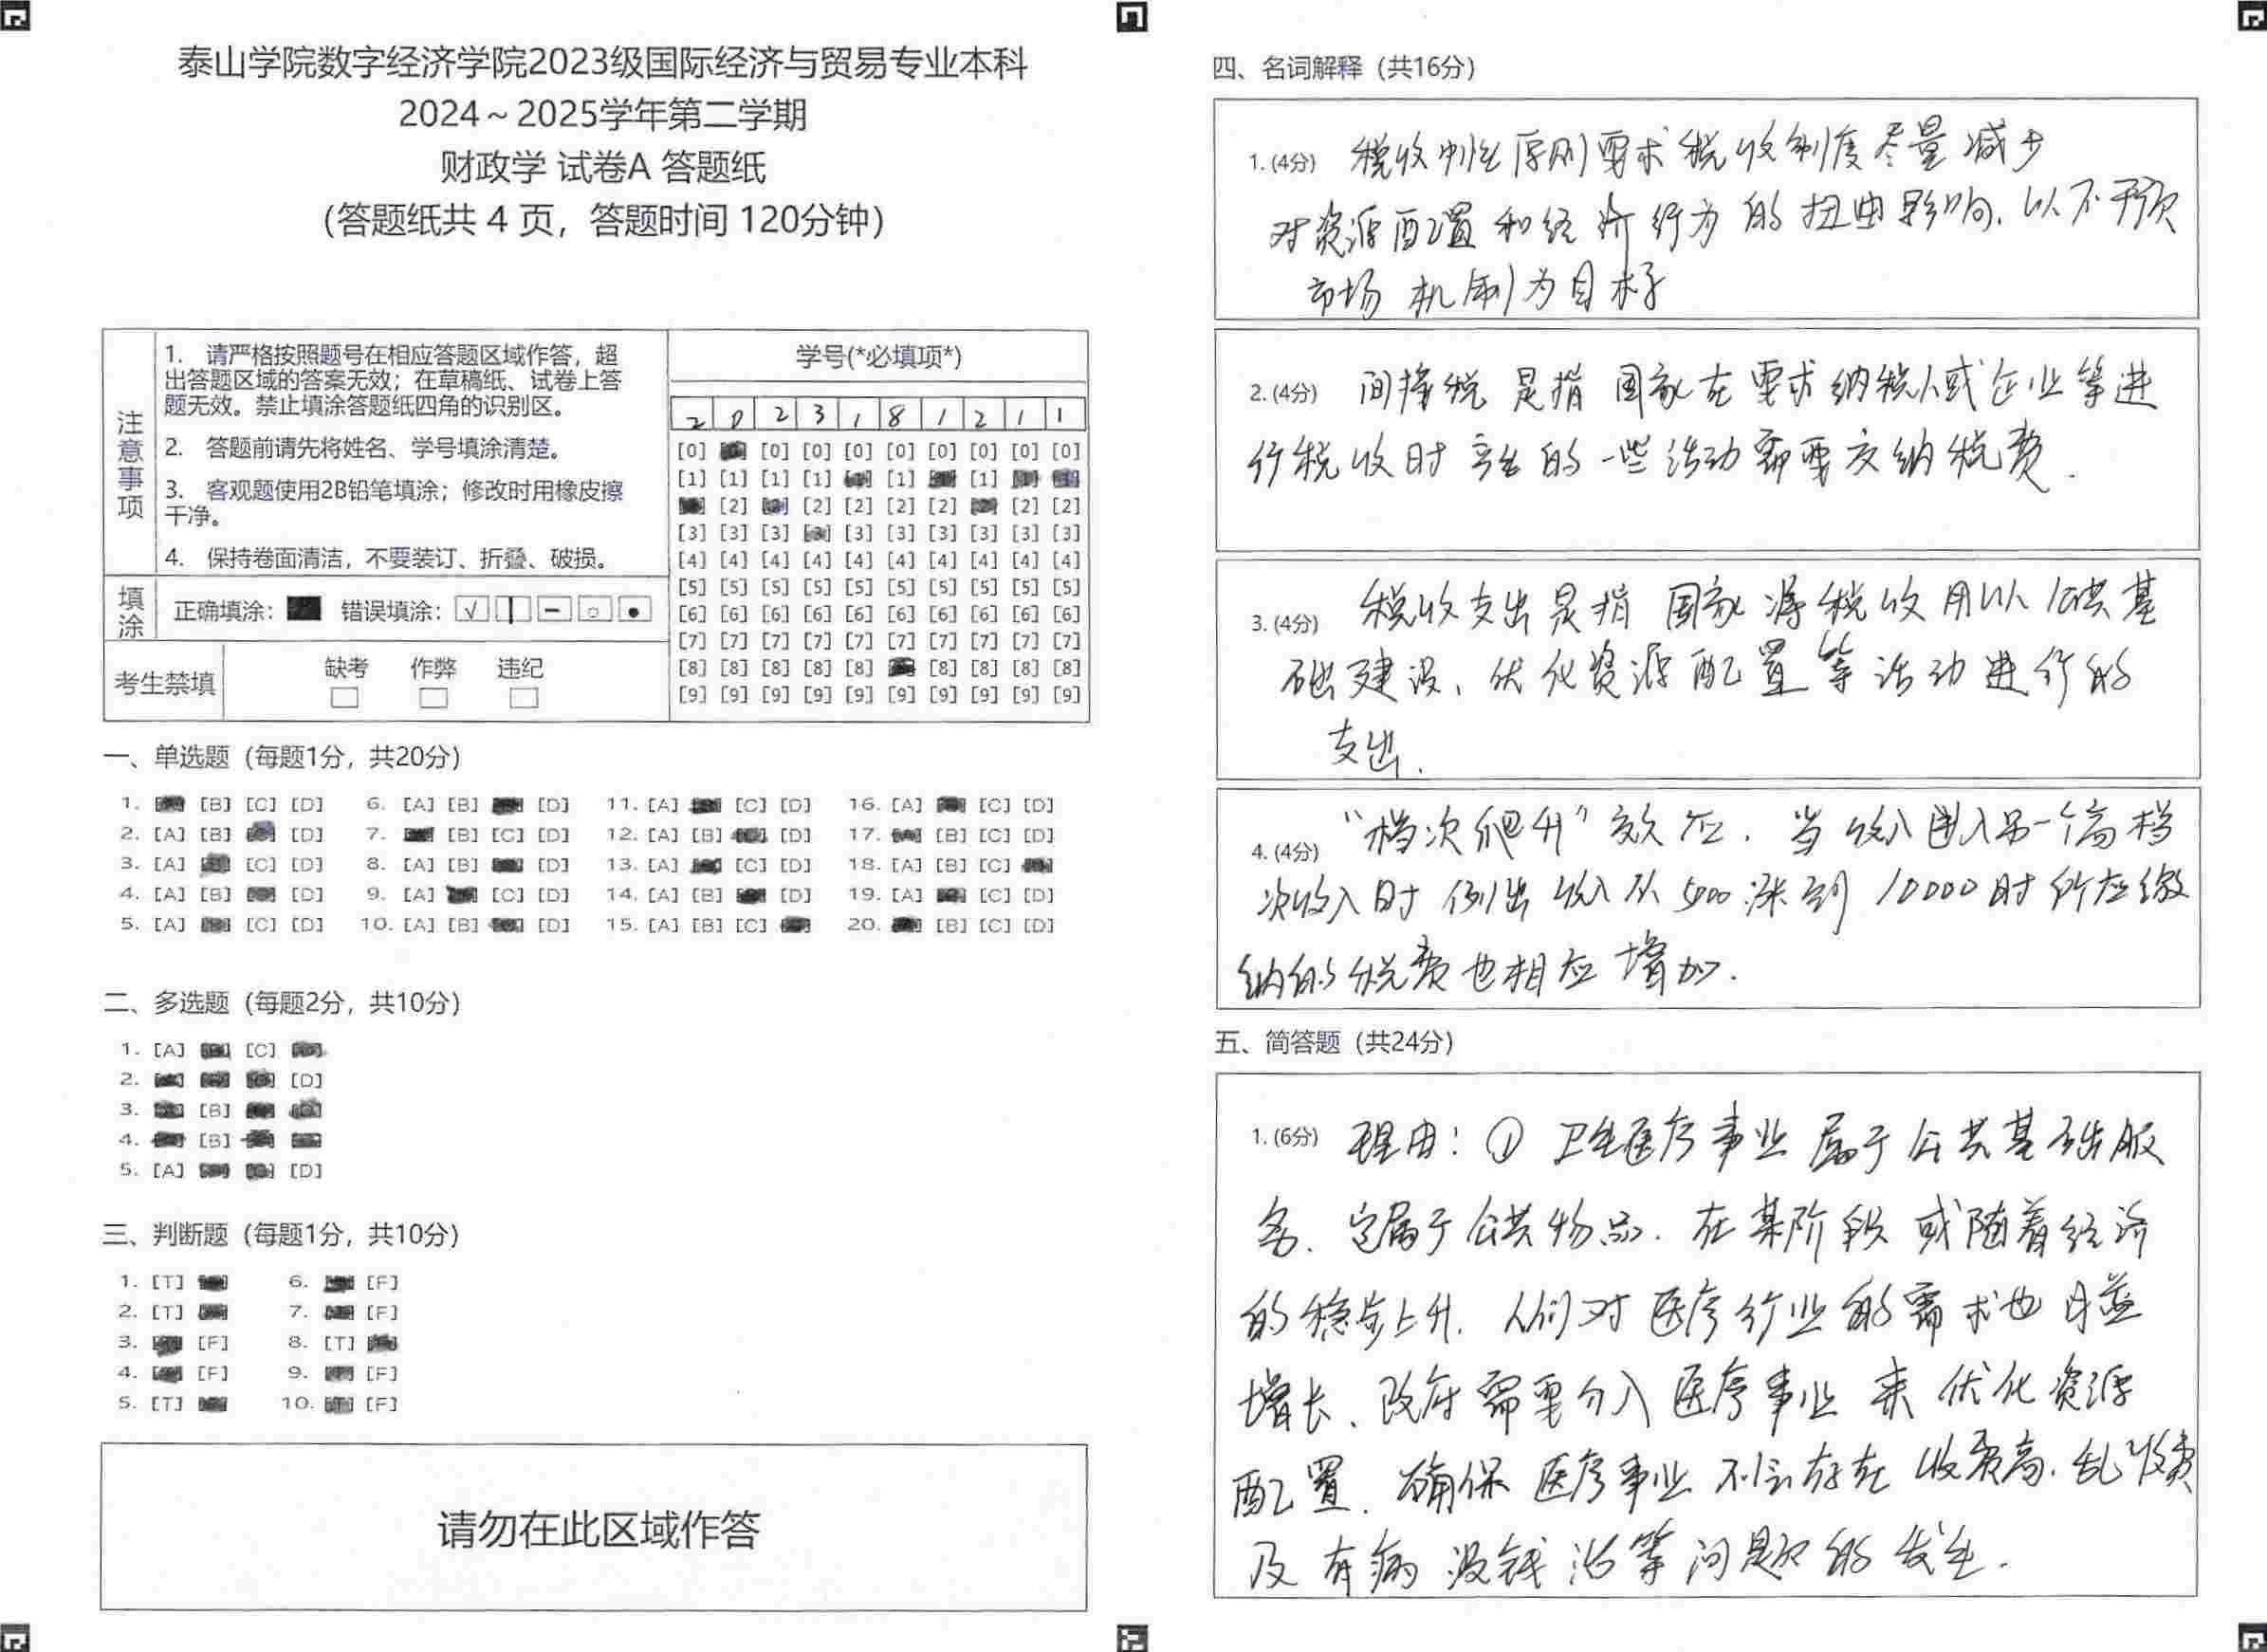 泰山学院数字经济学院2023级国际经济与贸易专业本科
2024～2025学年第二学期
财政学 试卷A 答题纸
（答题纸共 4 页，答题时间 120分钟）
注意事项
1. 请严格按照题号在相应答题区域作答，超
出答题区域的答案无效；在草稿纸、试卷上答
题无效。禁止填涂答题纸四角的识别区。
2. 答题前请先将姓名、学号填涂清楚。
3. 客观题使用2B铅笔填涂；修改时用橡皮擦
干净。
4. 保持卷面清洁，不要装订、折叠、破损。
填涂 正确填涂： 错误填涂：
考生禁填 缺考 作弊 违纪
学号(*必填项*)
2 0 2 3 1 8 1 2 1 1
[0] [0] [0] [0] [0] [0] [0] [0] [0]
[1] [1] [1] [1] [1] [1]
[2] [2] [2] [2] [2] [2] [2]
[3] [3] [3] [3] [3] [3] [3] [3] [3]
[4] [4] [4] [4] [4] [4] [4] [4] [4] [4]
[5] [5] [5] [5] [5] [5] [5] [5] [5] [5]
[6] [6] [6] [6] [6] [6] [6] [6] [6] [6]
[7] [7] [7] [7] [7] [7] [7] [7] [7] [7]
[8] [8] [8] [8] [8] [8] [8] [8] [8]
[9] [9] [9] [9] [9] [9] [9] [9] [9] [9]
一、单选题（每题1分，共20分）
1. [B] [C] [D] 6. [A] [B] [D] 11. [A] [C] [D] 16. [A] [C] [D]
2. [A] [B] [D] 7. [B] [C] [D] 12. [A] [B] [D] 17. [B] [C] [D]
3. [A] [C] [D] 8. [A] [B] [D] 13. [A] [C] [D] 18. [A] [B] [C]
4. [A] [B] [D] 9. [A] [C] [D] 14. [A] [B] [D] 19. [A] [C] [D]
5. [A] [C] [D] 10. [A] [B] [D] 15. [A] [B] [C] 20. [B] [C] [D]
二、多选题（每题2分，共10分）
1. [A] [C]
2. [D]
3. [B]
4. [B]
5. [A] [D]
三、判断题（每题1分，共10分）
1. [T] 6. [F]
2. [T] 7. [F]
3. [F] 8. [T]
4. [F] 9. [F]
5. [T] 10. [F]
请勿在此区域作答
四、名词解释（共16分）
1. (4分) 税收中性原则要求税收制度尽量减少
对资源配置和经济行为的扭曲影响，以不干预
市场机制为目标
2. (4分) 间接税是指国家在要求纳税人或企业等进
行税收时产生的一些活动需要交纳税费.
3. (4分) 税收支出是指国家将税收用以公共基
础建设、优化资源配置等活动进行的
支出.
4. (4分) “档次爬升”效应. 当收入进入另一个高档
次收入时 例出收入从5000涨到10000时所应缴
纳的税费也相应增加.
五、简答题（共24分）
1. (6分) 理由：① 卫生医疗事业属于公共基础服
务、它属于公共物品. 在某阶段或随着经济
的稳步上升. 人们对医疗行业的需求也日益
增长、政府需要介入医疗事业来优化资源
配置. 确保医疗事业不会存在收费高. 乱收费
及有病没钱治等问题的发生.